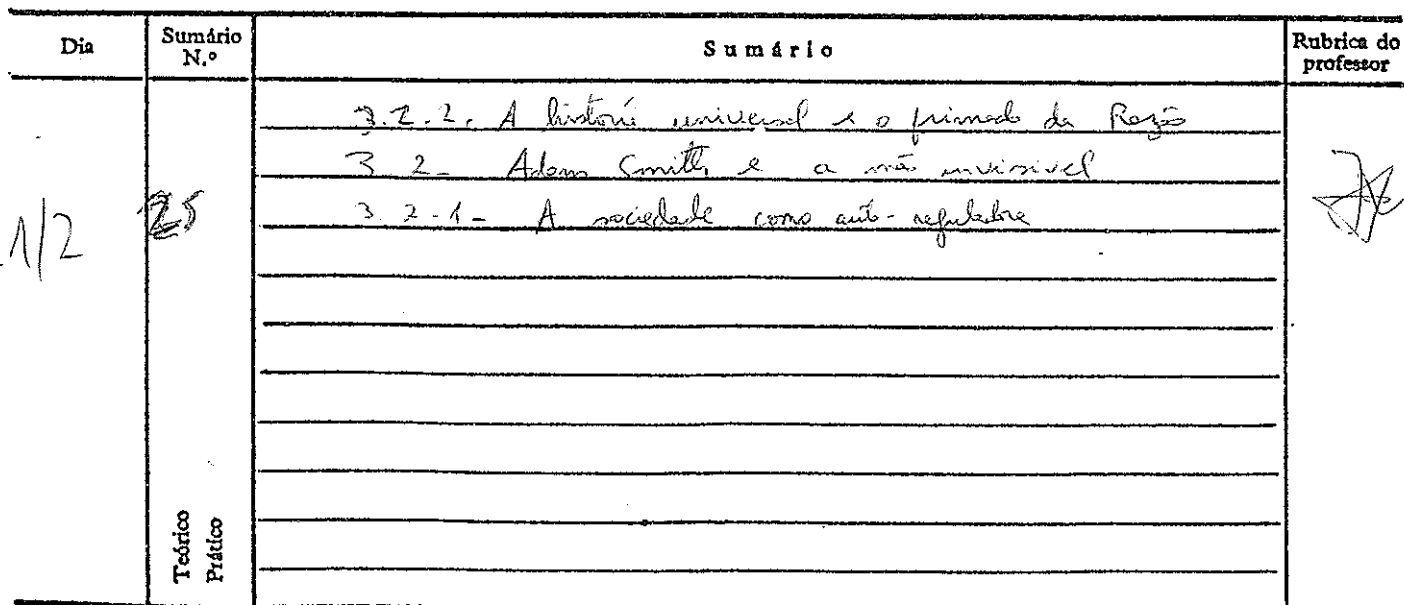 Dia
Sumário N.º
Sumário
Rubrica do professor
3.2.2. A história universal e o primado da Razão
3.2- Adam Smith e a mão invisível
3.2-1- A sociedade como auto-reguladora
1/2
25
Teórico
Prático